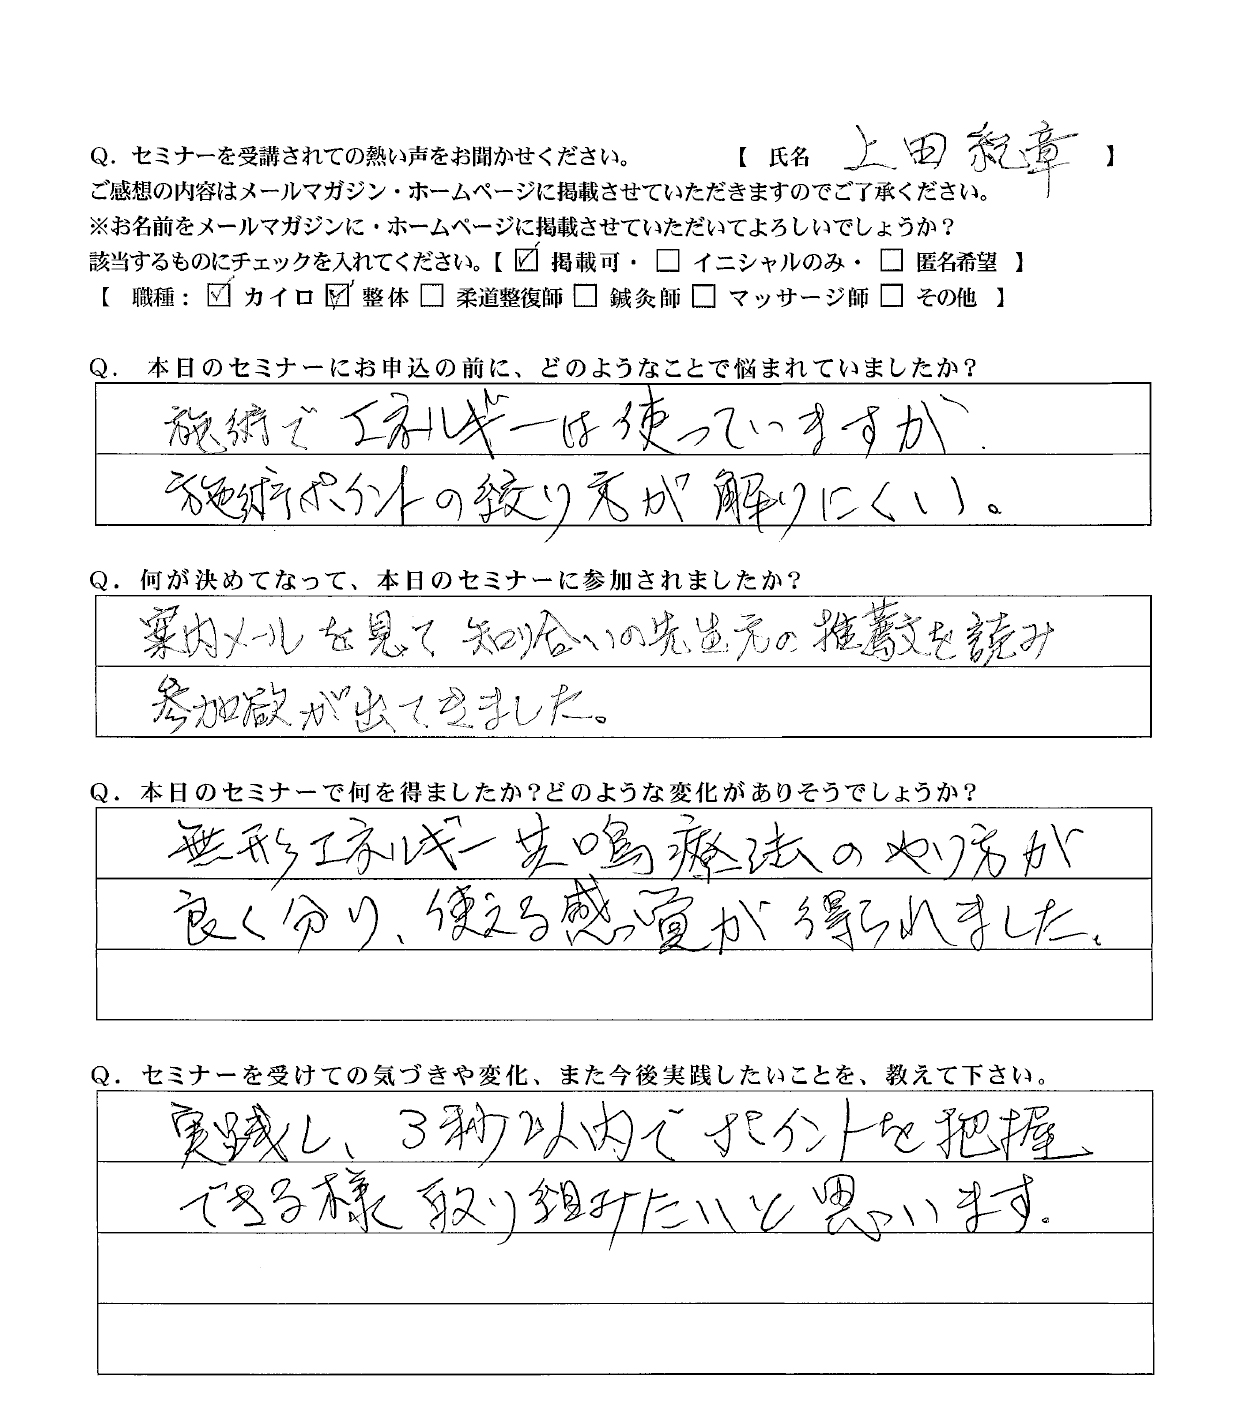 Q. セミナーを受講されての熱い声をお聞かせください。 【 氏名 上田 紀章 】
ご感想の内容はメールマガジン・ホームページに掲載させていただきますのでご了承ください。
※お名前をメールマガジンに・ホームページに掲載させていただいてよろしいでしょうか？
該当するものにチェックを入れてください。【 ☑ 掲載可・ □ イニシャルのみ・ □ 匿名希望 】
【 職種： ☑ カイロ ☑ 整体 □ 柔道整復師 □ 鍼灸師 □ マッサージ師 □ その他 】
Q. 本日のセミナーにお申込の前に、どのようなことで悩まれていましたか？
施術でエネルギーは使っていますが、
施術ポイントの絞り方が解りにくい。
Q. 何が決めてなって、本日のセミナーに参加されましたか？
案内メールを見て知り合いの先生方の推薦文を読み
参加欲が出てきました。
Q. 本日のセミナーで何を得ましたか？どのような変化がありそうでしょうか？
無形エネルギー共鳴療法のやり方が
良く分り、使える感覚が得られました。
Q. セミナーを受けての気づきや変化、また今後実践したいことを、教えて下さい。
実践し、3秒以内でポイントを把握
できる様取り組みたいと思います。